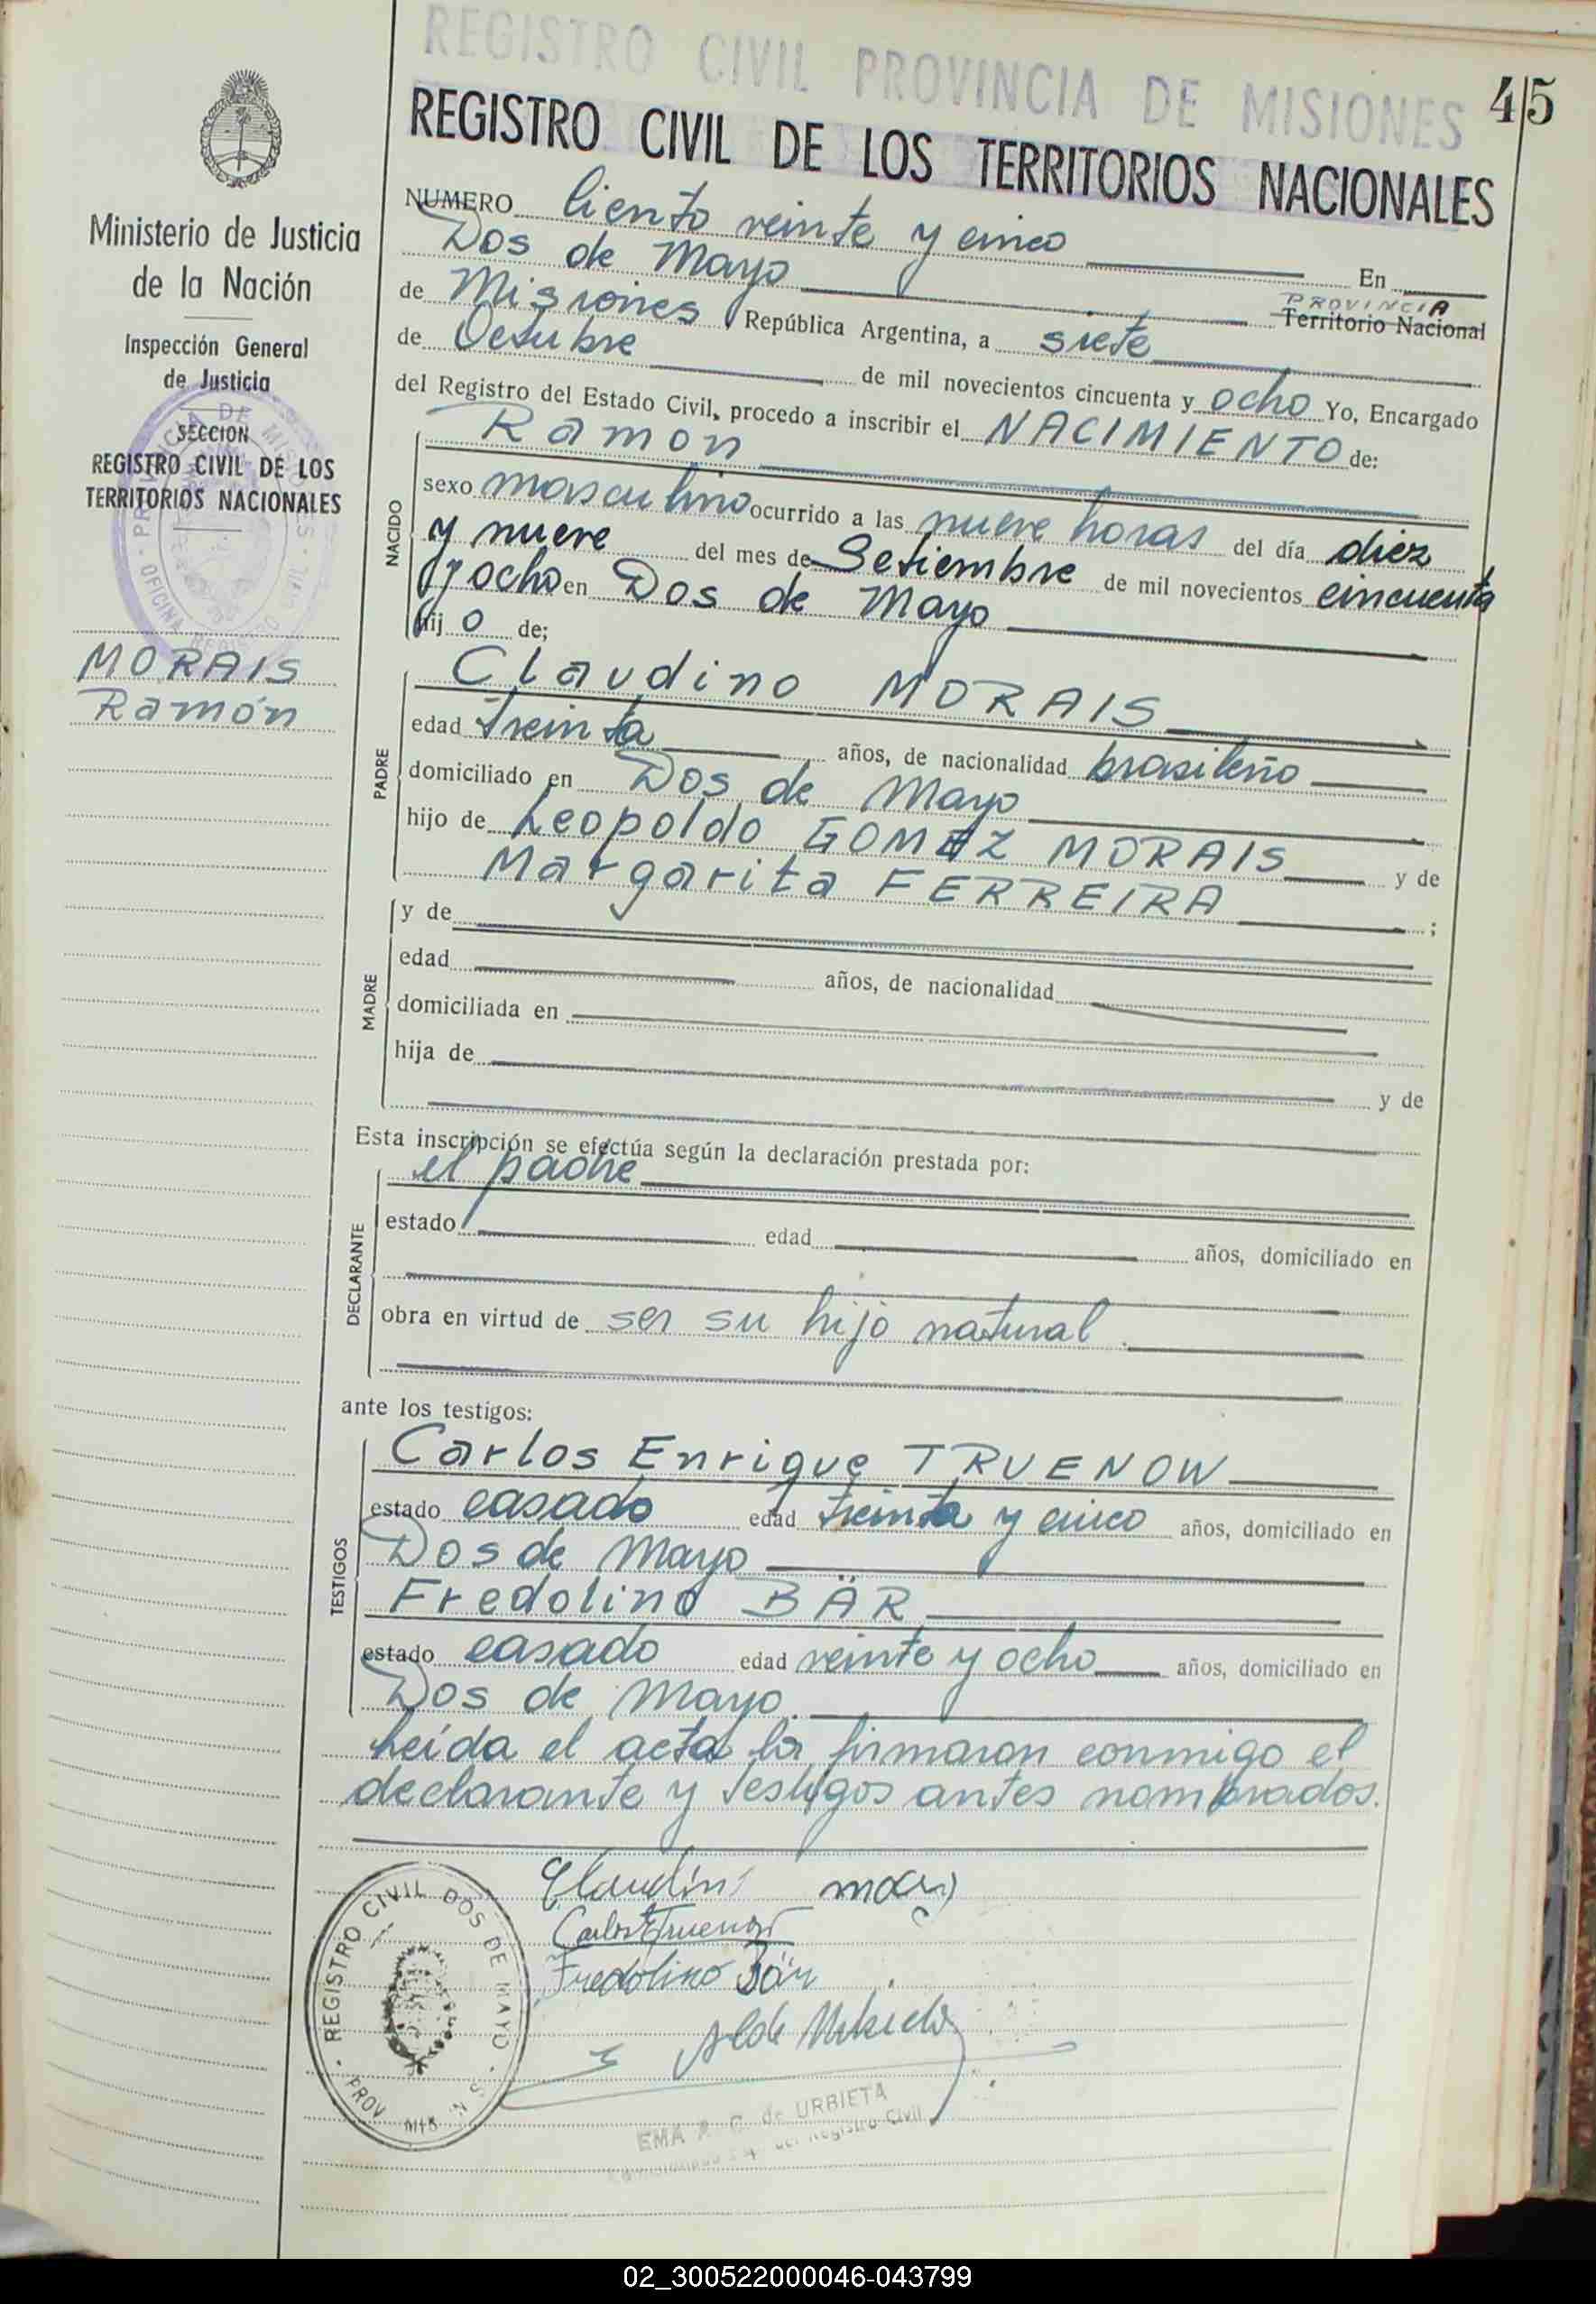 REGISTRO CIVIL PROVINCIA DE MISIONES
45
REGISTRO CIVIL DE LOS TERRITORIOS NACIONALES
Ministerio de Justicia
de la Nación
Inspección General
de Justicia
SECCION
REGISTRO CIVIL DE LOS
TERRITORIOS NACIONALES
MORAIS
Ramón
NUMERO Ciento veinte y cinco En
Dos de Mayo PROVINCIA Territorio Nacional
de Misiones República Argentina, a siete
de Octubre de mil novecientos cincuenta y ocho Yo, Encargado
del Registro del Estado Civil, procedo a inscribir el NACIMIENTO de:
NACIDO
Ramon
sexo masculino ocurrido a las nueve horas del día diez
y nueve del mes de Setiembre de mil novecientos cincuenta
y ocho en Dos de Mayo
hij o de;
PADRE
Claudino MORAIS
edad treinta años, de nacionalidad brasileño
domiciliado en Dos de Mayo
hijo de Leopoldo GOMEZ MORAIS y de
Margarita FERREIRA ;
MADRE
y de
edad años, de nacionalidad
domiciliada en
hija de y de
Esta inscripción se efectúa según la declaración prestada por:
DECLARANTE
el padre
estado edad años, domiciliado en
obra en virtud de ser su hijo natural.
ante los testigos:
TESTIGOS
Carlos Enrique TRUENOW
estado casado edad treinta y cinco años, domiciliado en
Dos de Mayo
Fredolino BÄR
estado casado edad veinte y ocho años, domiciliado en
Dos de Mayo.
Leída el acta la firmaron conmigo el
declarante y testigos antes nombrados.
Claudino
Carlos E Truenow
Fredolino Bär
REGISTRO CIVIL DOS DE MAYO - S. N. PROV. MIS
EMA A. C. de URBIETA
del Registro Civil
02_300522000046-043799